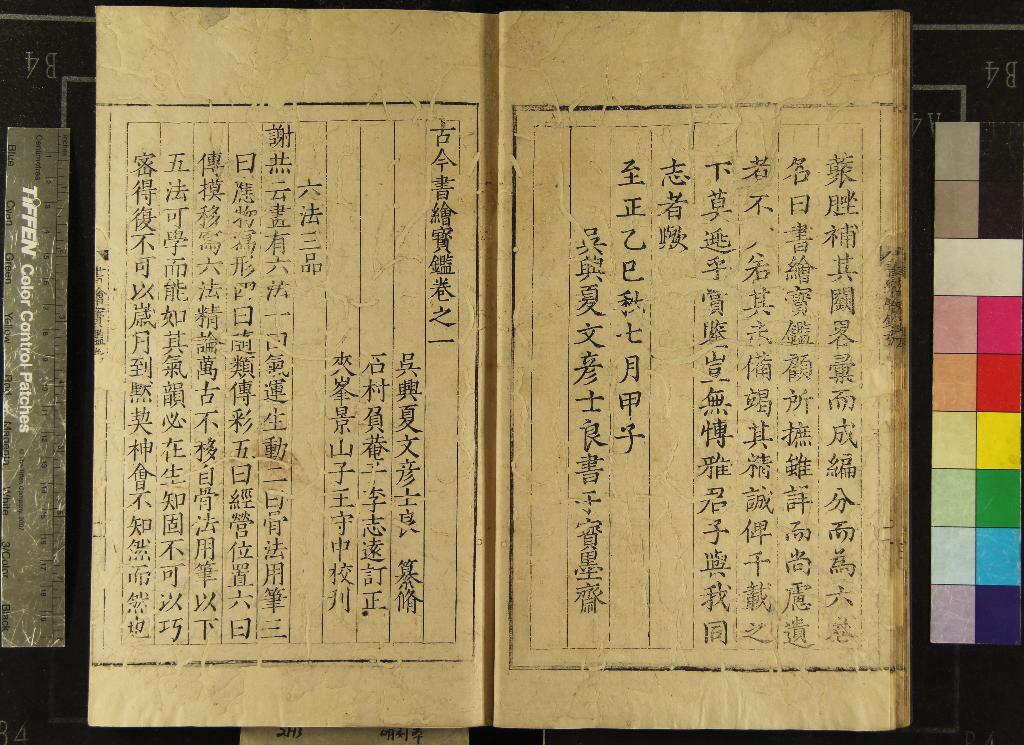 叢脞補其闕畧彙而成編分而為六卷
名曰書繪寶鑑顧所摭雖詳而尚慮遺
者不人若其未備竭其精誠俾千載之
下莫逃乎賞鑒豈無博雅君子與我同
志者歟
至正乙巳秋七月甲子
吳興夏文彥士良書于寶墨齋
古今書繪寶鑑卷之一
吳興夏文彥士良 纂脩
石村負菴子李志遠訂正
夾峯景山子王守中校刋
六法三品
謝赫云畫有六法一曰氣運生動二曰骨法用筆三
曰應物寫形四曰隨類傳彩五曰經營位置六曰
傳摸移寫六法精論萬古不移自骨法用筆以下
五法可學而能如其氣韻必在生知固不可以巧
密得復不可以歲月到黙契神會不知然而然也
TIFFEN Color Control Patches
Centimetres
Inches
Blue
Cyan
Green
Yellow
Red
Magenta
White
3/Color
Black
B4
B4
A4
B4